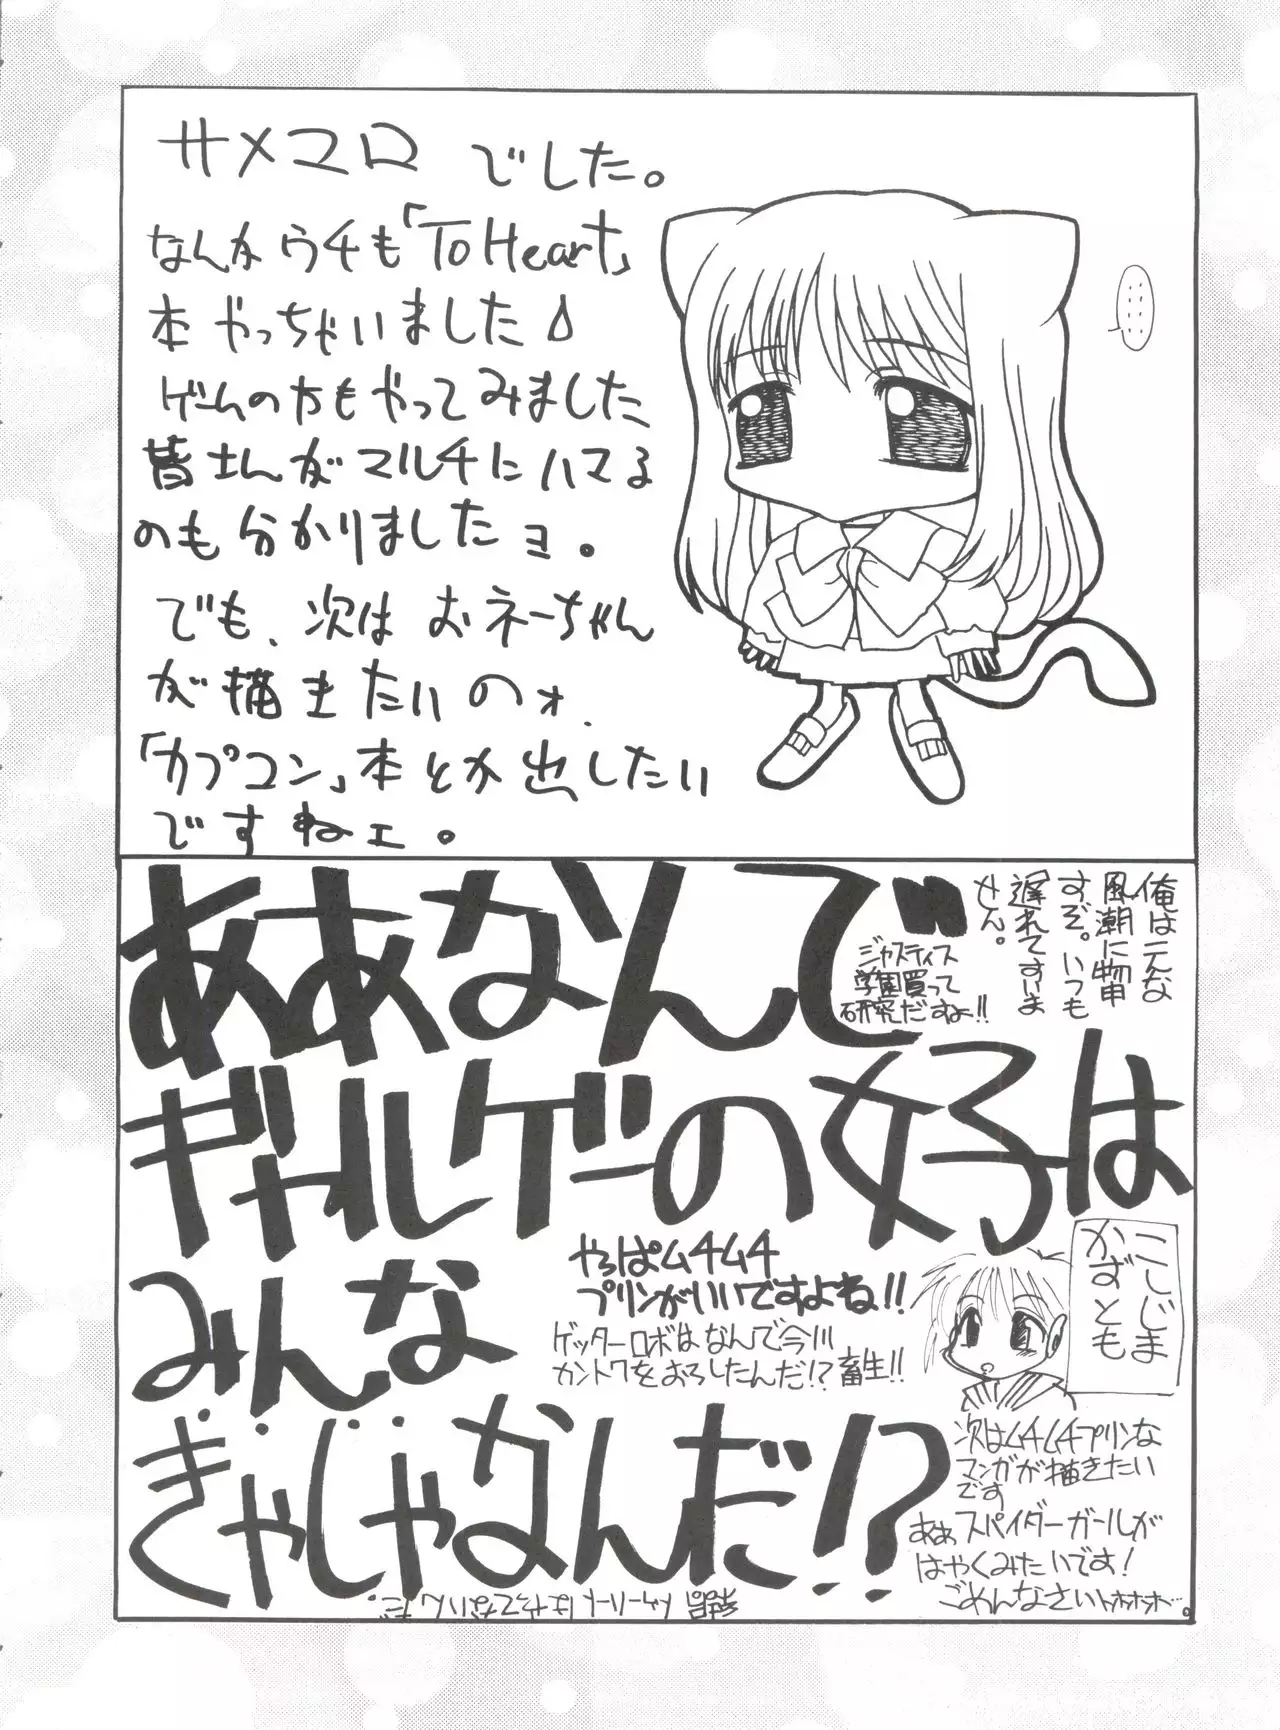 サメマロ でした。
なんか ウチも「To Heart」
本 やっちゃいました
ゲームの方もやってみました
皆さんがマルチにハマる
のも 分かりましたョ。
でも、次は おネーちゃん
が描きたいのォ.
「カプコン」本とか出したい
ですねェ。
‥‥‥‥
ああなんで
ギャルゲーの女子は
みんな
きゃしゃなんだ!?
俺はこんな
風潮に物申
すぞ。いつも
遅れてすいま
せん。
ジャスティス
学園買って
研究だすよ!!
やっぱムチムチ
プリンがいいですよね!!
ゲッターロボはなんで今川
カントクをおろしたんだ!?畜生!!
こじま
かずとも
次はムチムチプリンな
マンガが描きたい
です
ああスパイダーガールが
はやくみたいです!
ごめんなさいトホホホ…。
はやってないんだ。